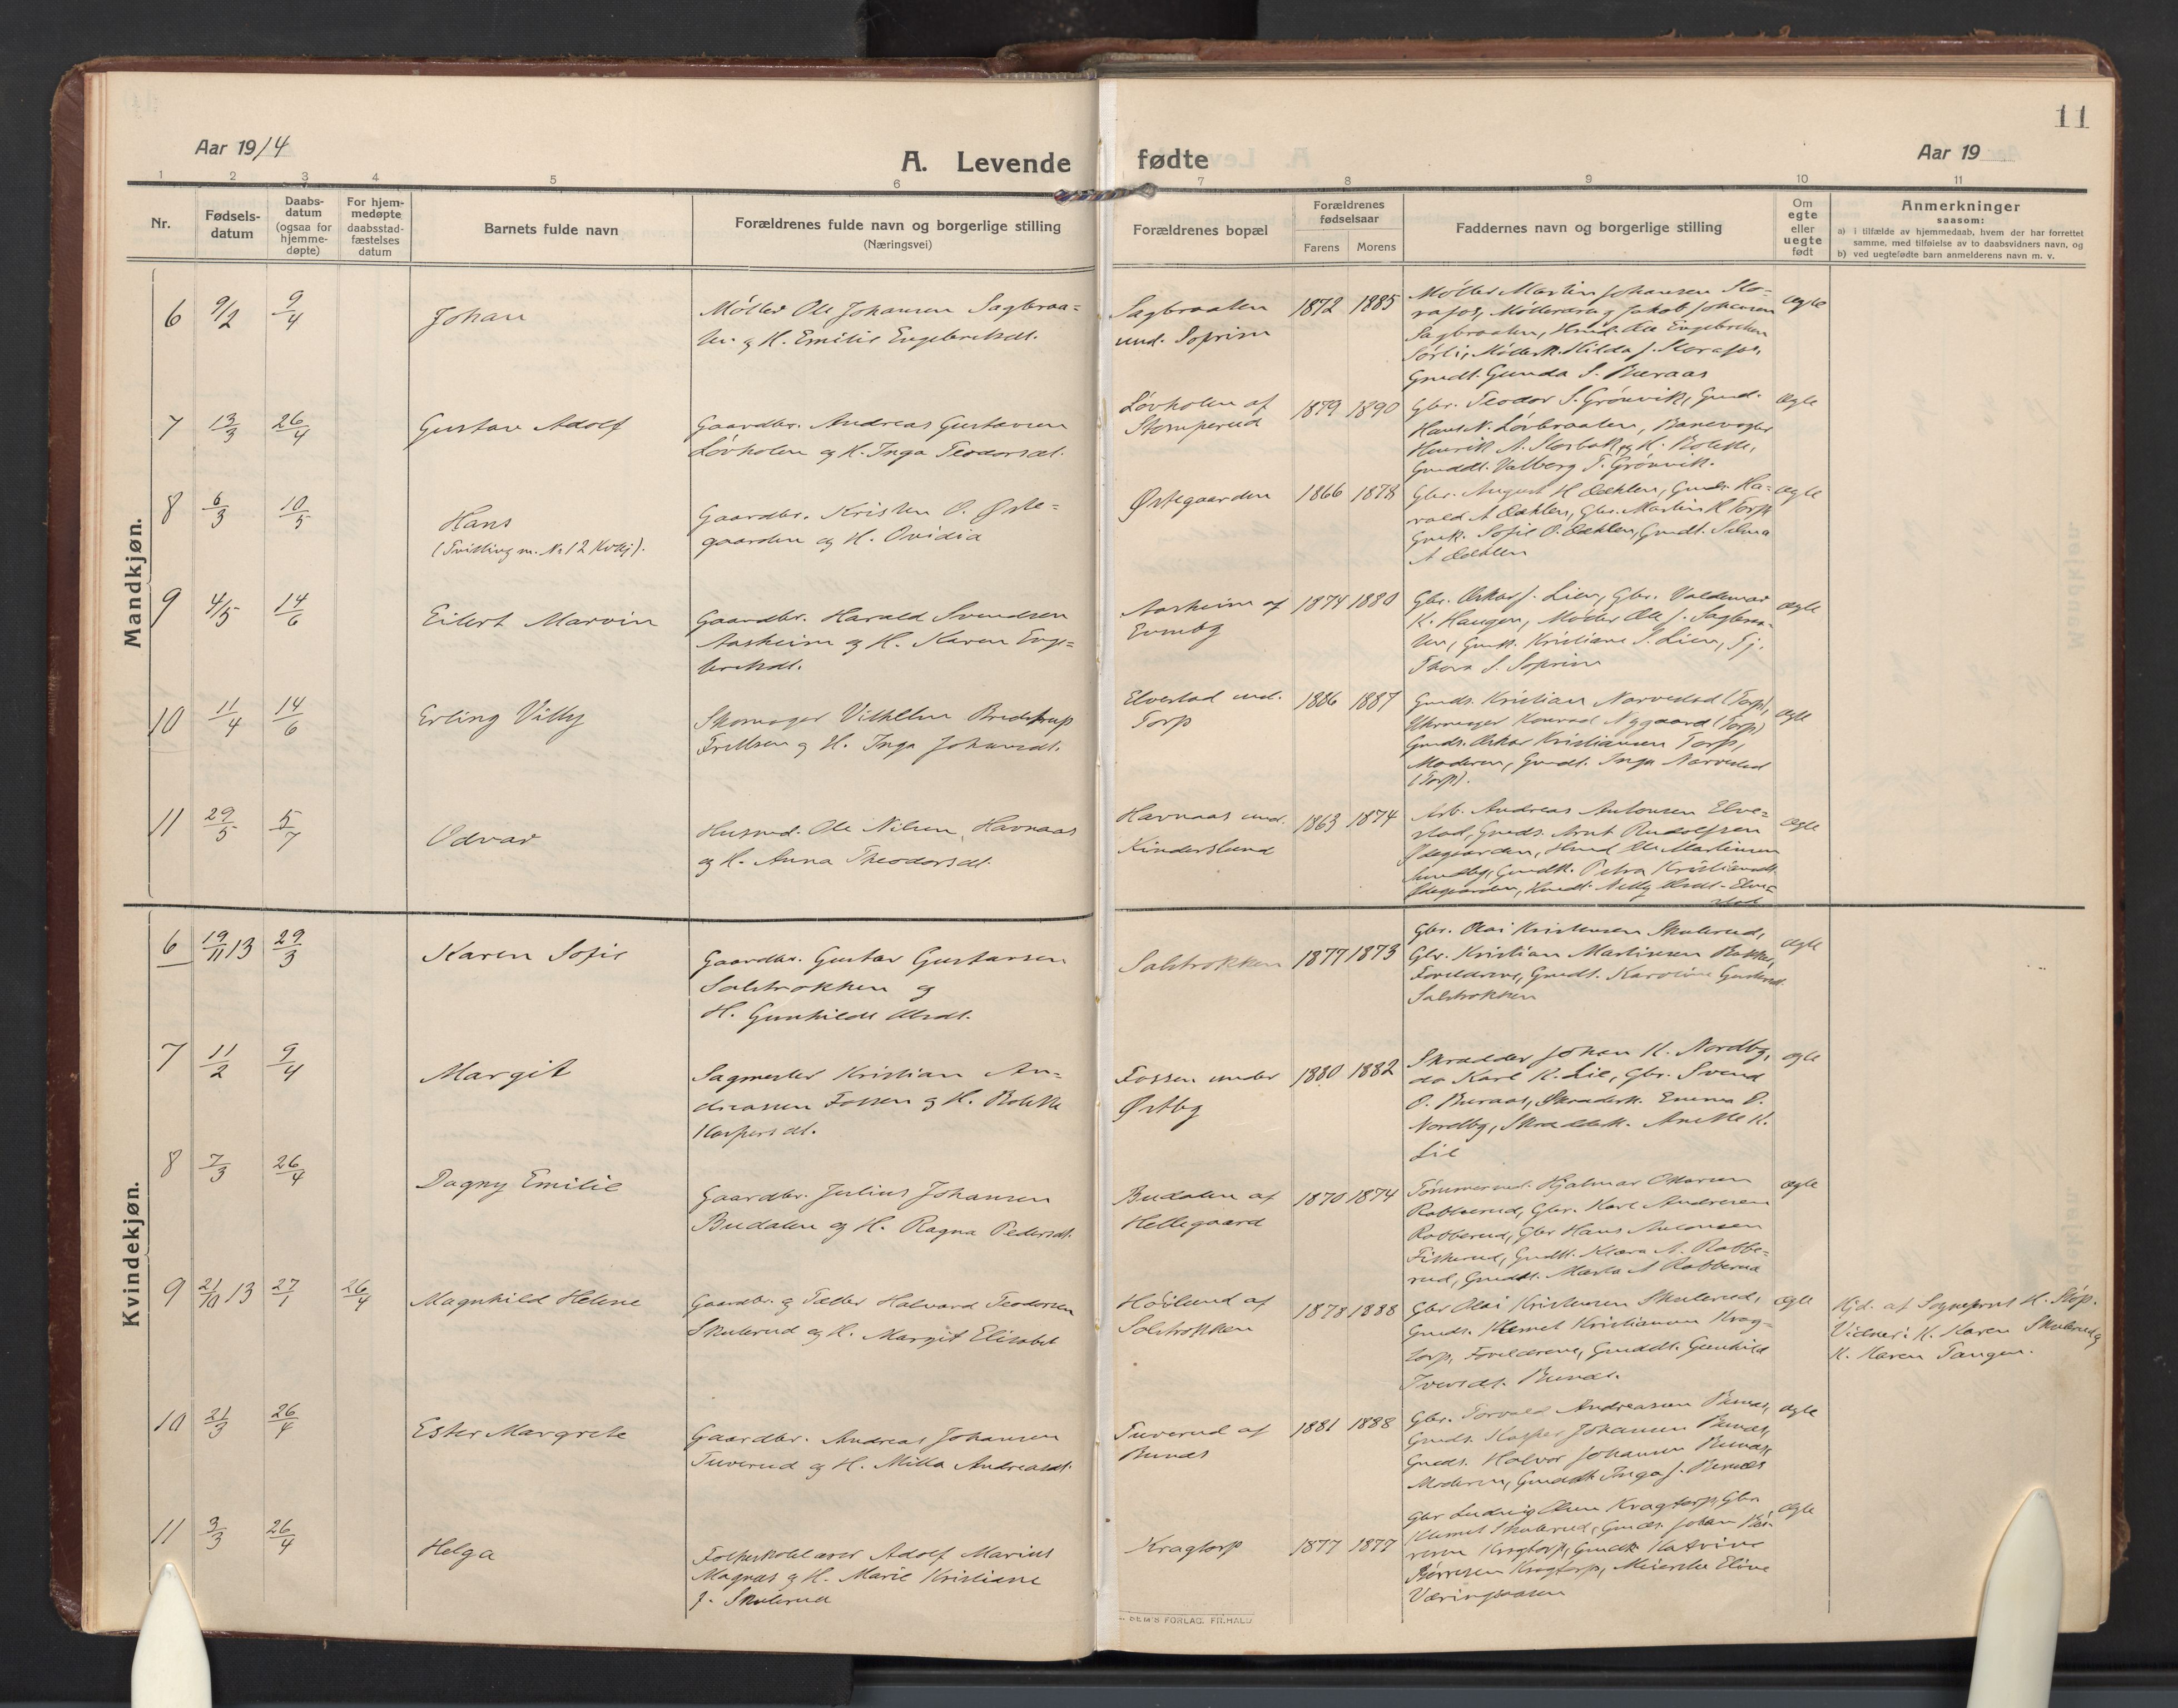 11
Aar 1914
A. Levende fødte
Aar 19
1 2 3 4 5 6 7 8 9 10 11
Nr.
Fødsels-
datum
Daabs-
datum
(ogsaa for
hjemme-
døpte)
For hjem-
medøpte
daabsstad-
fæstelses
datum
Barnets fulde navn
Forældrenes fulde navn og borgerlige stilling
(Næringsvei)
Forældrenes bopæl
Forældrenes
fødselsaar
Farens Morens
Faddernes navn og borgerlige stilling
Om
egte
eller
uegte
født
Anmerkninger
saasom:
a) i tilfælde av hjemmedaab, hvem der har forrettet
samme, med tilføielse av to daabsvidners navn, og
b) ved uegtefødte barn anmelderens navn m. v.
Mandkjøn.
6 9/2 9/4 Johan
Møller Ole Johansen Sagbraa-
ten og H. Emilie Engebretsdt.
Sagbraaten
und. Soprim
1872 1885
Møller Martin Johansen Sto-
rafos, Møllerdreng Jakob Johansen
Sagbraaten, Husm. Ole Engebretsen
Sørli, Møllerk. Hilda J. Storafos,
Gmdt. Gunda S. Buraas
egte
7 13/3 26/4 Gustav Adolf
Gaardbr. Andreas Gustavsen
Løvholen og H. Inga Teodorsdt.
Løvholen af
Stomperud
1879 1890
Gbr. Teodor S. Grønvik, Gmd.
Hans N. Løvbraaten, Banevogter
Henrik A. Storbak og H. Bolette,
Gmdt. Valborg T. Grønvik.
egte
8 6/3 10/5 Hans
(Tvilling m. Nr 12 Kvkj).
Gaardbr. Kristen O. Øste-
gaarden og H. Ovidia
Østegaarden
1866 1878
Gbr. August H Dahlen, Gmds. Ha-
rald A Dahlen, Gbr. Martin H Torp
Gmk. Sofie O. Dahlen, Gmdt. Selma
A Dahlen
egte
9 4/5 14/6 Eilert Marvin
Gaardbr. Harald Svendsen
Aasheim og H. Karen Enge-
bretsdt.
Aasheim af
1874 1880
Gbr. Oskar J. Lien, Gbr. Valdemar
K. Haugen, Møller Ole J. Sagbraa-
ten, Gmk. Kristiane S. Lien, Pj.
Thora S. Soprim
egte
10 11/4 14/6 Erling Villy
Skomager Vilhelm Bredstrup
og H. Inga Johansdt.
Elvestad und.
Torp
1886 1887
Gmds. Kristian Narvestad (Torp),
Skomager Konrad Nygaard (Torp)
Gmds. Oskar Kristiansen Torp,
Moderen, Gmdt. Inga Narvestad
(Torp).
egte
11 29/5 5/7 Odvar
Husmd. Ole Nilsen Havnaas
og H. Anna Theodorsdt.
Havnaas und.
Kinderslund
1863 1874
Arb. Andreas Antonsen Elve-
stad, Gmds. Arnt Rudolfsen
Ødegaarden, Husmd Ole Martinsen
Sundby, Gmdk. Petra Kristiansdt.
Ødegaarden, Husdt. Nelly Olsdt. Elve-
stad
egte
Kvindekjøn.
6 19/11 13 29/3 Karen Sofie
Gaardbr. Gustav Gustavsen
Solstrokken og
H. Gunhilde Olsdt.
Solstrokken
1877 1873
Gbr. Olai Kristensen Skulerud,
Gbr. Kristian Martinsen Bakke,
Forældrene, Gmdt. Karoline
Solstrokken
egte
7 11/2 9/4 Margit
Sagmester Kristian An-
dreassen Fossen og H. Bolette
Kaspersdt.
Fossen under
Østby
1880 1882
Skrædder Johan K. Nordby,
do Karl K. Lie, Gbr. Svend
O. Buraas, Skrædderk. Emma O.
Nordby, Skrædderk. Anette K.
Lie
egte
8 7/3 26/4 Dagny Emilie
Gaardbr. Julius Johansen
Budalen og H. Ragna Pedersdt.
Budalen af
Hellegaard
1870 1874
Tømmermd. Hjalmar Oskarsen
Robberud, Gbr. Karl Andresen
Robberud, Gbr Hans Antonsen
Fiskerud, Gmdt. Klara A. Robbe-
rud, Gmdt. Marta A Robberud
egte
9 21/10 13 27/1 26/4 Magnhild Helene
Gaardbr. og Halvard Teodorsen
Skulerud og H. Margit Elisabet
Høilund af
Solstrokken
1878 1888
Gbr Olai Kristensen Skulerud,
Gmds. Klemet Kristiansen Krag-
torp, Forældrene, Gmdt. Gunhild
Iversdt. Bunæs.
egte
Hjd. af Sogneprest H. Skop.
Vidner: K. Karen Skulerud og
K. Karen Tangen.
10 21/3 26/4 Ester Margrete
Gaardbr. Andreas Johansen
Tuverud og H. Milla Andreasdt.
Tuverud af
Bunæs
1881 1888
Gbr. Torvald Andreassen Bunæs,
Gmds. Kasper Johansen Bunæs,
Gmds. Halvor Johansen Bunæs,
Moderen, Gmdt. Inga J. Bunæs
egte
11 3/3 26/4 Helga
Folkeskolelærer Adolf Marius
Magnæs og H. Marie Kristiane
J. Skulerud
Kragtorp
1877 1877
Gbr Ludvig Olsen Kragtorp, Gbr
Klemet Skulerud, Gmds. Johan Bør-
resen Kragtorp, Gmdk Katrine
Børresen Kragtorp, Meierske Eline
Væringsaasen
egte
FORLAG. FR.HALD